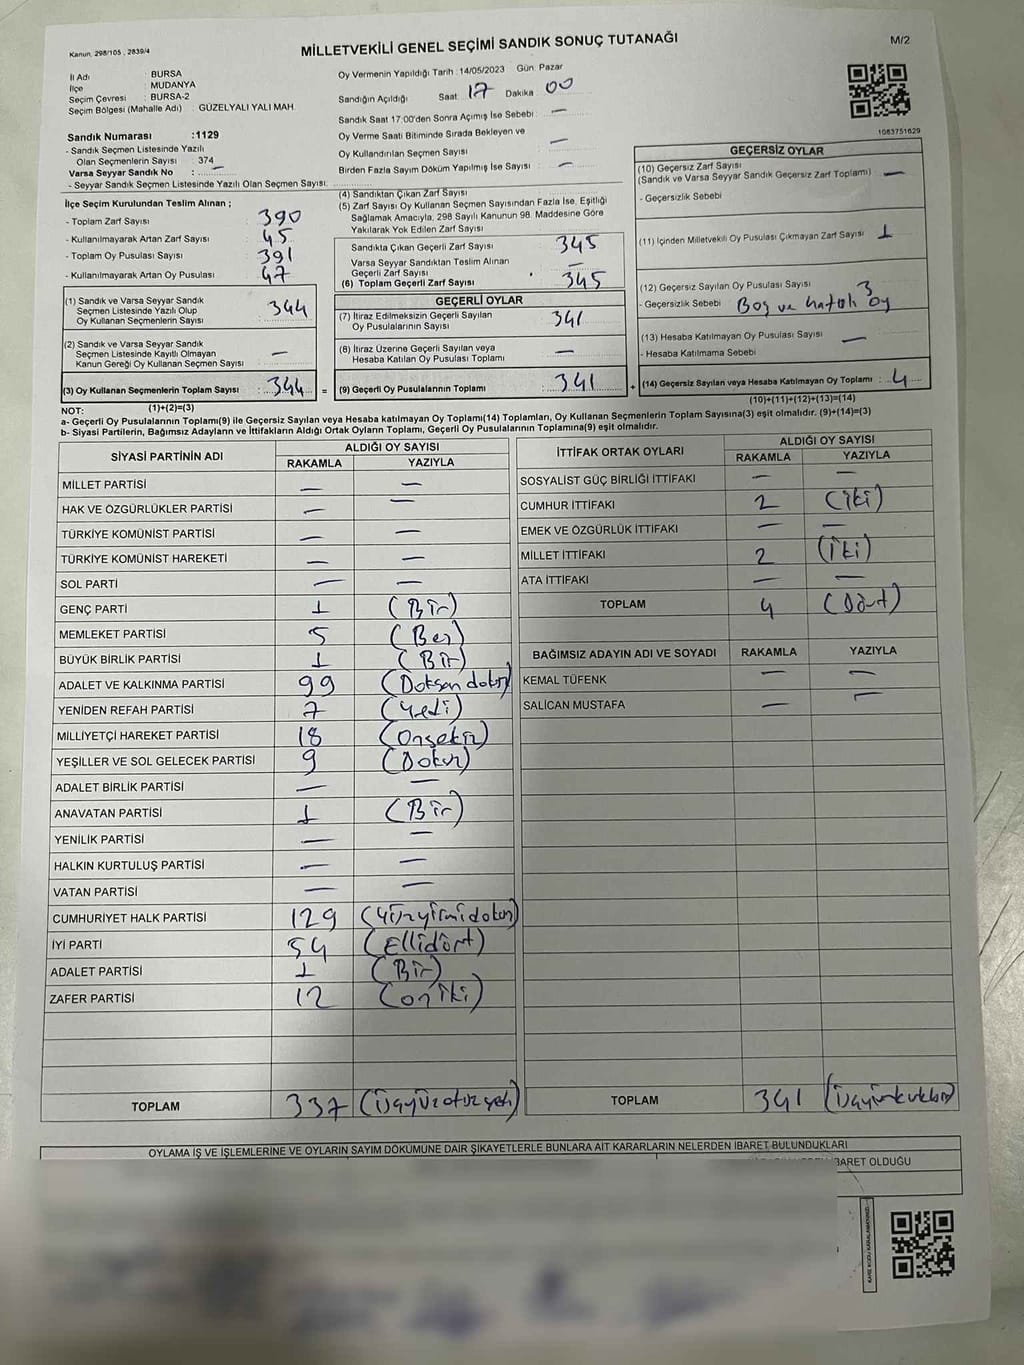 Kanun, 298/105 , 2839/4
MİLLETVEKİLİ GENEL SEÇİMİ SANDIK SONUÇ TUTANAĞI
M/2
İl Adı : BURSA
İlçe : MUDANYA
Seçim Çevresi : BURSA-2
Seçim Bölgesi (Mahalle Adı) : GÜZELYALI YALI MAH.
Oy Vermenin Yapıldığı Tarih : 14/05/2023 Gün: Pazar
Sandığın Açıldığı Saat: 17 Dakika 00
Sandık Saat 17:00'den Sonra Açımış İse Sebebi : —
Oy Verme Saati Bitiminde Sırada Bekleyen ve
Oy Kullandırılan Seçmen Sayısı —
Birden Fazla Sayım Döküm Yapılmış İse Sayısı : —
1063751629
Sandık Numarası :1129
- Sandık Seçmen Listesinde Yazılı
Olan Seçmenlerin Sayısı : 374
Varsa Seyyar Sandık No : —
- Seyyar Sandık Seçmen Listesinde Yazılı Olan Seçmen Sayısı:
İlçe Seçim Kurulundan Teslim Alınan ;
- Toplam Zarf Sayısı 390
- Kullanılmayarak Artan Zarf Sayısı 45
- Toplam Oy Pusulası Sayısı 391
- Kullanılmayarak Artan Oy Pusulası 47
(1) Sandık ve Varsa Seyyar Sandık
Seçmen Listesinde Yazılı Olup
Oy Kullanan Seçmenlerin Sayısı 344
(2) Sandık ve Varsa Seyyar Sandık
Seçmen Listesinde Kayıtlı Olmayan
Kanun Gereği Oy Kullanan Seçmen Sayısı —
(3) Oy Kullanan Seçmenlerin Toplam Sayısı : 344 =
(1)+(2)=(3)
(4) Sandıktan Çıkan Zarf Sayısı
(5) Zarf Sayısı Oy Kullanan Seçmen Sayısından Fazla İse, Eşitliği
Sağlamak Amacıyla, 298 Sayılı Kanunun 98. Maddesine Göre
Yakılarak Yok Edilen Zarf Sayısı
Sandıkta Çıkan Geçerli Zarf Sayısı 345
Varsa Seyyar Sandıktan Teslim Alınan
Geçerli Zarf Sayısı —
(6) Toplam Geçerli Zarf Sayısı 345
GEÇERLİ OYLAR
(7) İtiraz Edilmeksizin Geçerli Sayılan
Oy Pusulalarının Sayısı 341
(8) İtiraz Üzerine Geçerli Sayılan veya
Hesaba Katılan Oy Pusulası Toplamı —
(9) Geçerli Oy Pusulalarının Toplamı 341 +
GEÇERSİZ OYLAR
(10) Geçersiz Zarf Sayısı
(Sandık ve Varsa Seyyar Sandık Geçersiz Zarf Toplamı) —
- Geçersizlik Sebebi
(11) İçinden Milletvekili Oy Pusulası Çıkmayan Zarf Sayısı 1
(12) Geçersiz Sayılan Oy Pusulası Sayısı 3
- Geçersizlik Sebebi Boş ve hatalı oy
(13) Hesaba Katılmayan Oy Pusulası Sayısı —
- Hesaba Katılmama Sebebi
(14) Geçersiz Sayılan veya Hesaba Katılmayan Oy Toplamı : 4
(10)+(11)+(12)+(13)=(14)
NOT:
a- Geçerli Oy Pusulalarının Toplamı(9) ile Geçersiz Sayılan veya Hesaba katılmayan Oy Toplamı(14) Toplamları, Oy Kullanan Seçmenlerin Toplam Sayısına(3) eşit olmalıdır. (9)+(14)=(3)
b- Siyasi Partilerin, Bağımsız Adayların ve İttifakların Aldığı Ortak Oyların Toplamı, Geçerli Oy Pusulalarının Toplamına(9) eşit olmalıdır.
SİYASİ PARTİNİN ADI ALDIĞI OY SAYISI
RAKAMLA YAZIYLA
MİLLET PARTİSİ — —
HAK VE ÖZGÜRLÜKLER PARTİSİ — —
TÜRKİYE KOMÜNİST PARTİSİ — —
TÜRKİYE KOMÜNİST HAREKETİ — —
SOL PARTİ — —
GENÇ PARTİ 1 (Bir)
MEMLEKET PARTİSİ 5 (Beş)
BÜYÜK BİRLİK PARTİSİ 1 (Bir)
ADALET VE KALKINMA PARTİSİ 99 (Doksan dokuz)
YENİDEN REFAH PARTİSİ 7 (Yedi)
MİLLİYETÇİ HAREKET PARTİSİ 18 (Onsekiz)
YEŞİLLER VE SOL GELECEK PARTİSİ 9 (Dokuz)
ADALET BİRLİK PARTİSİ — —
ANAVATAN PARTİSİ 1 (Bir)
YENİLİK PARTİSİ — —
HALKIN KURTULUŞ PARTİSİ — —
VATAN PARTİSİ — —
CUMHURİYET HALK PARTİSİ 129 (Yüzyirmidokuz)
İYİ PARTİ 54 (Ellidört)
ADALET PARTİSİ 1 (Bir)
ZAFER PARTİSİ 12 (on iki)
TOPLAM 337 (Üçyüzotuzyedi)
İTTİFAK ORTAK OYLARI ALDIĞI OY SAYISI
RAKAMLA YAZIYLA
SOSYALİST GÜÇ BİRLİĞİ İTTİFAKI — —
CUMHUR İTTİFAKI 2 (iki)
EMEK VE ÖZGÜRLÜK İTTİFAKI — —
MİLLET İTTİFAKI 2 (İki)
ATA İTTİFAKI — —
TOPLAM 4 (Dört)
BAĞIMSIZ ADAYIN ADI VE SOYADI RAKAMLA YAZIYLA
KEMAL TÜFENK — —
SALİCAN MUSTAFA — —
TOPLAM 341 (Üçyüzkırkbir)
OYLAMA İŞ VE İŞLEMLERİNE VE OYLARIN SAYIM DÖKÜMÜNE DAİR ŞİKAYETLERLE BUNLARA AİT KARARLARIN NELERDEN İBARET BULUNDUKLARI
BARET OLDUĞU